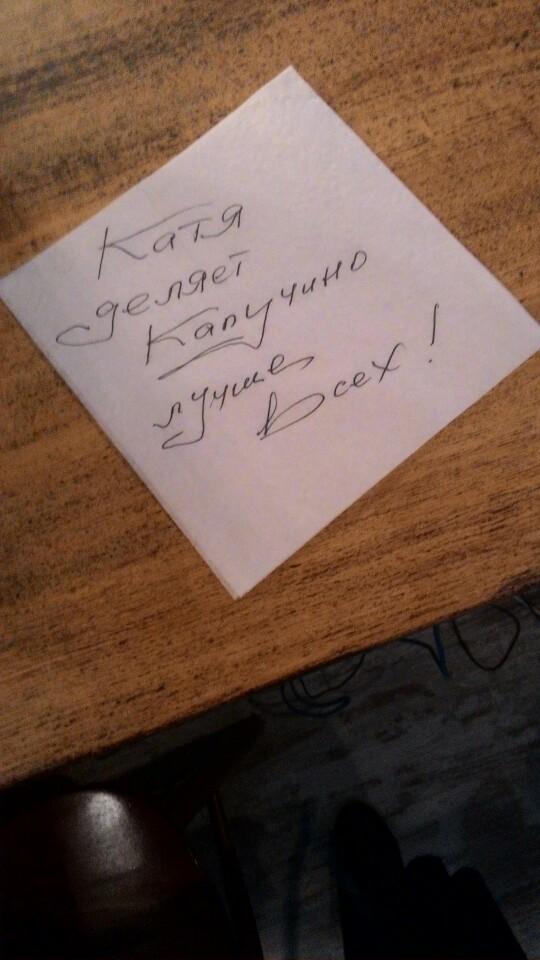 Катя
деляет
Капучино
лучше
Всех!